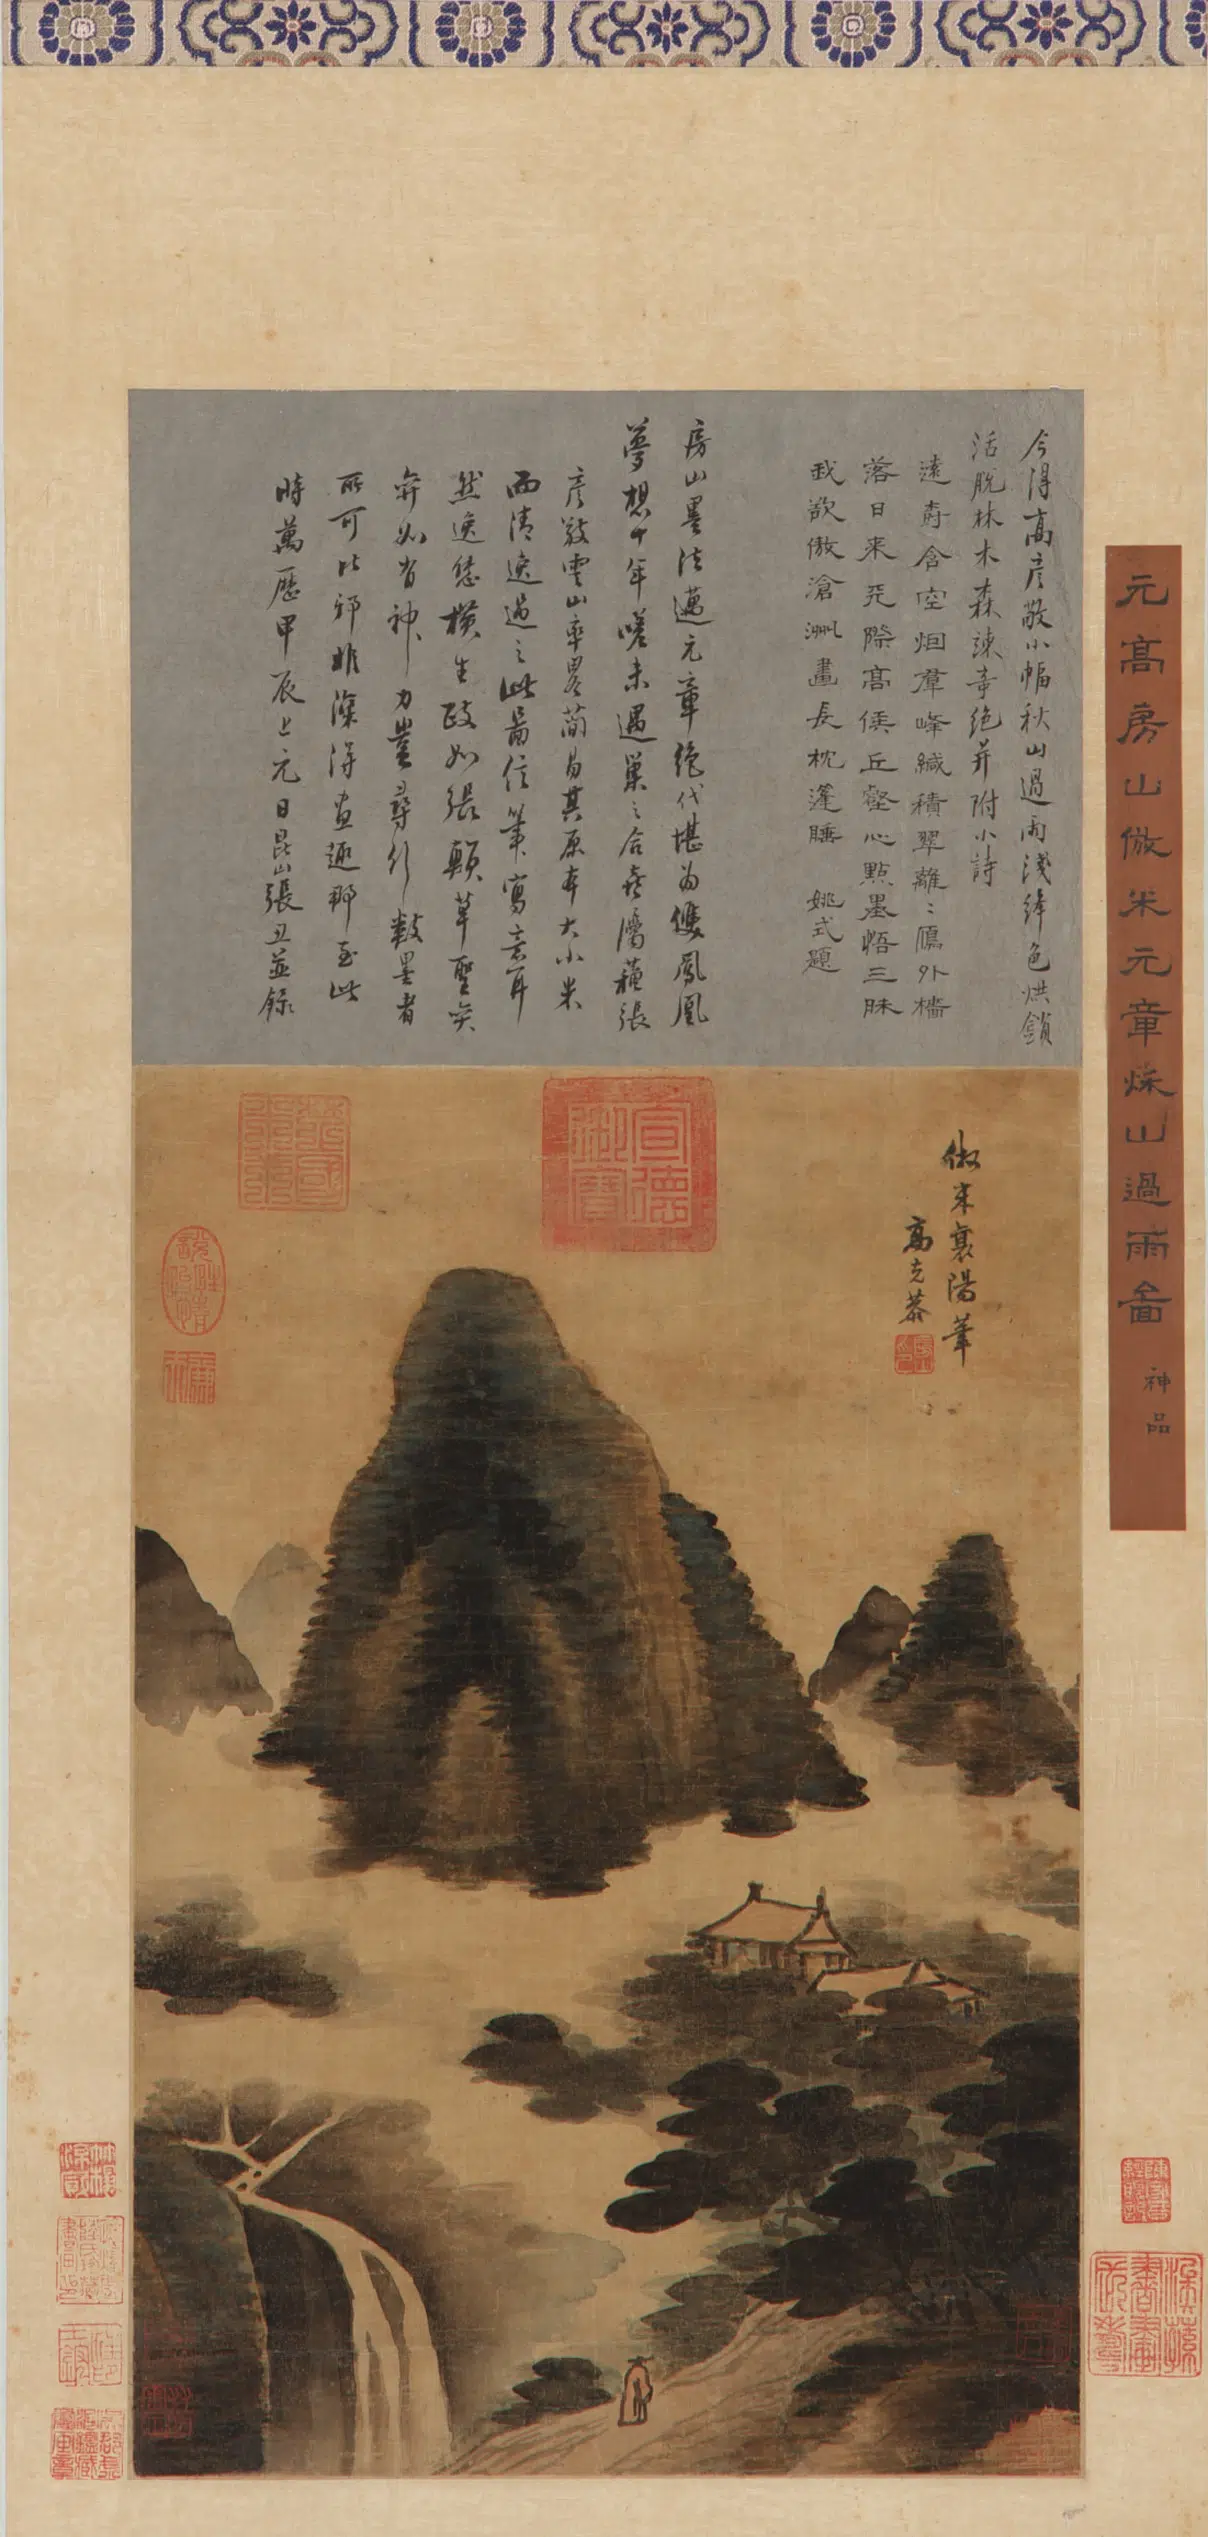 元高房山倣米元章秋山過雨啚
神品
今得高彦敬小幅秋山過雨淺絳色烘鎖
活脫林木森竦竒絶并附小詩
遠㝷含空烟羣峰緘積翠離〻鴈外檣
落日來天際高侯丘壑心點墨悟三昧
我欲傲滄洲畫長枕蓬睡 姚式題
房山墨法邁元章絶代堪為雙鳳凰
夢想十年嗟未遇巢〻合在屬蘓張
彦敬雲山率畧蕳易其原本大小米
而清逸過之此啚信筆寫意耳
然逸態横生政如張顛草聖奕
奕如有神力豈尋行數墨者
所可比邪非深得畫趣那至此
時萬歷甲辰上元日昆山張丑並錄
倣米襄陽筆
高克恭
宣德御寶